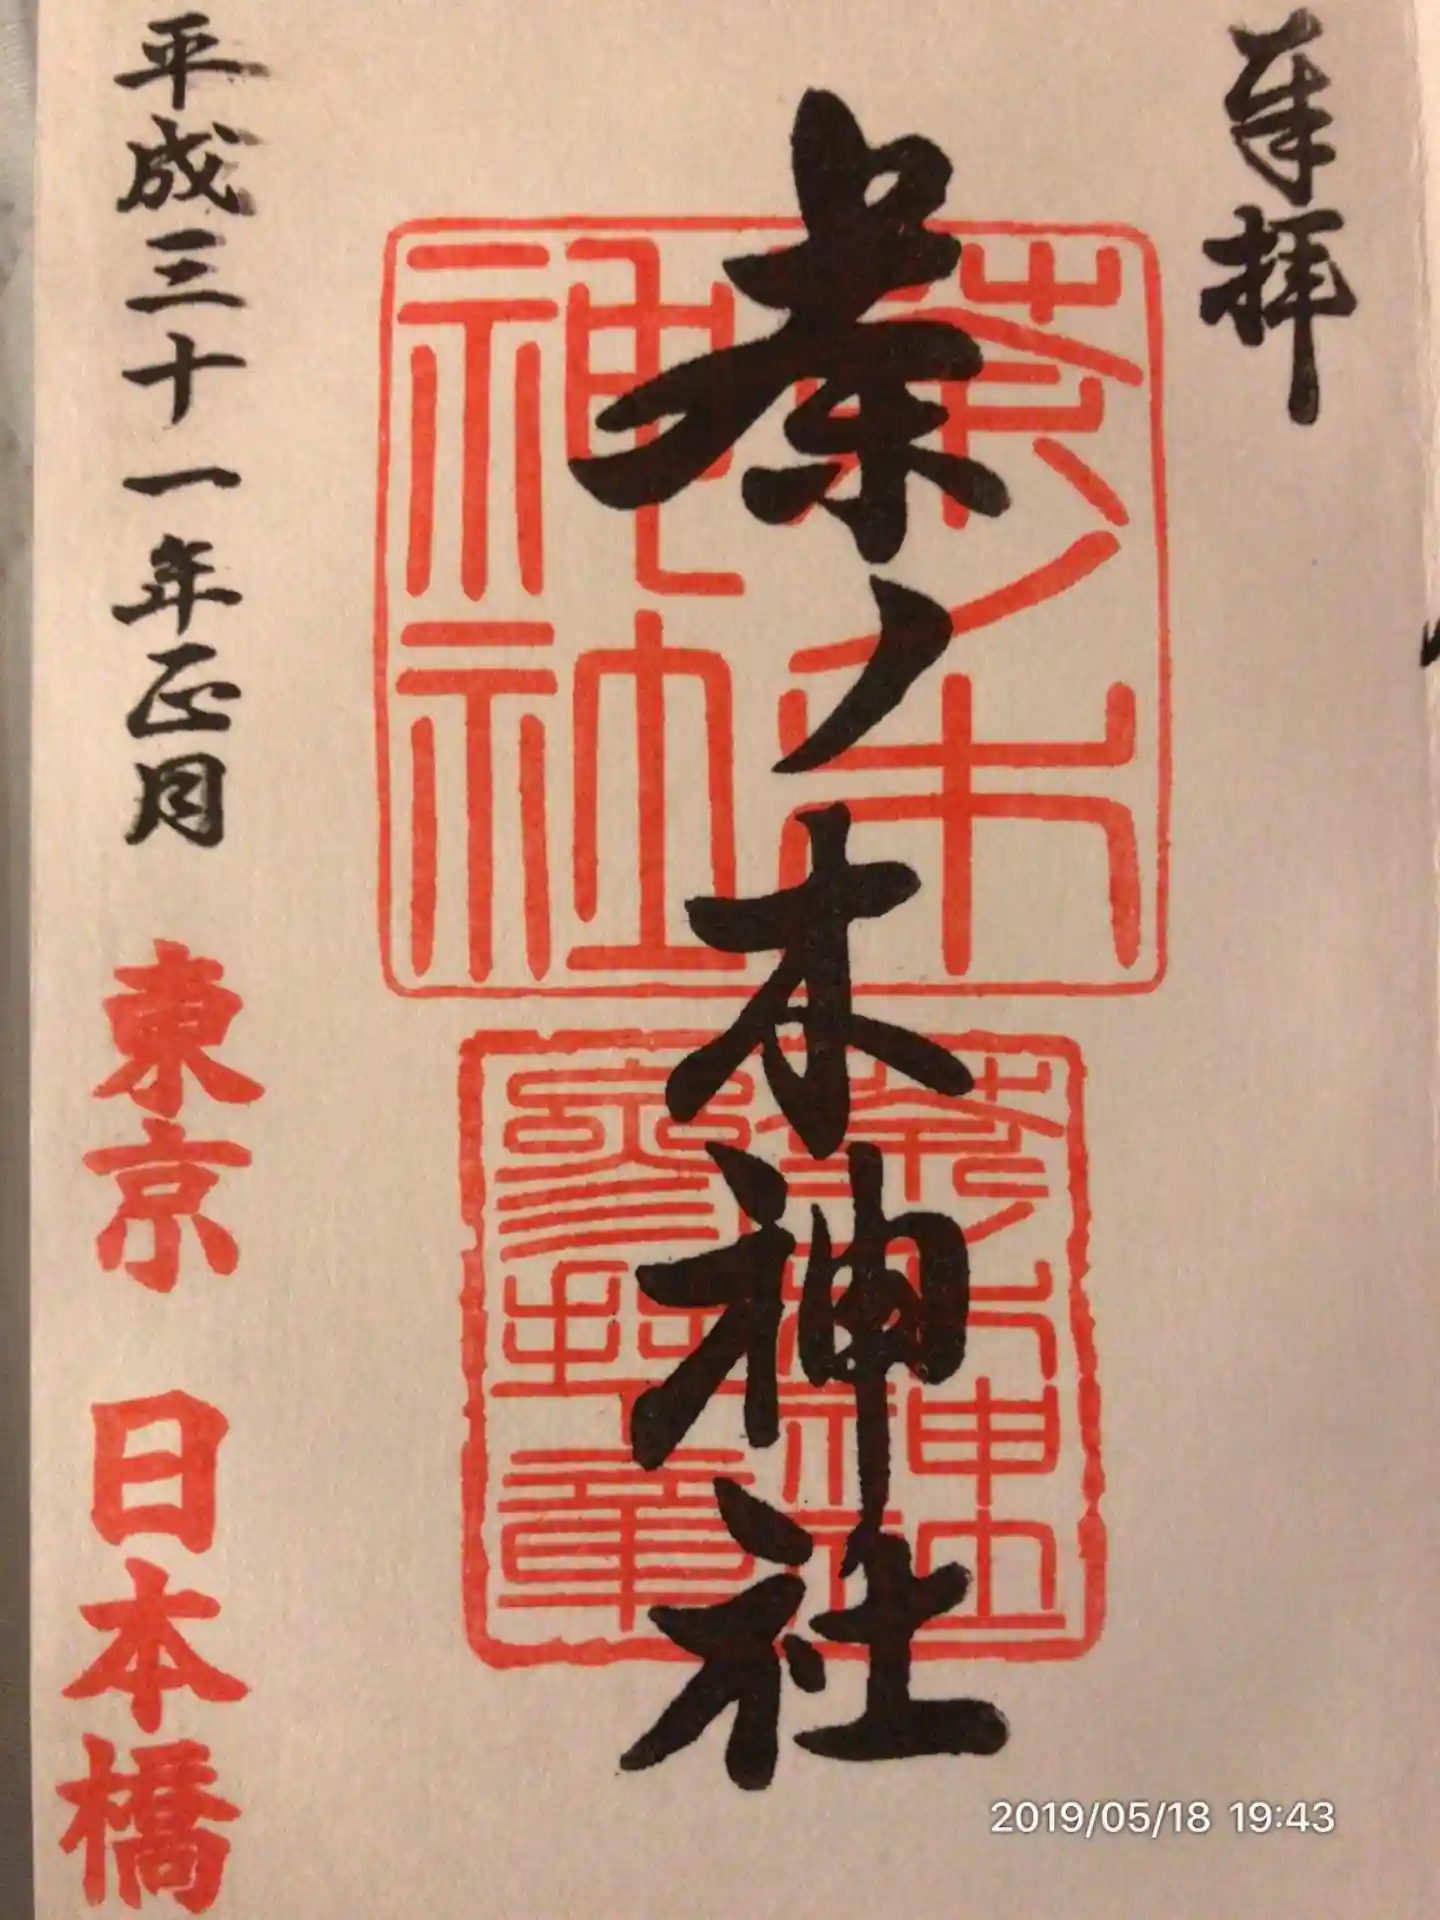 奉拝
茶ノ木神社
茶ノ木
神社
茶ノ木神社
参拝章
平成三十一年正月
東京 日本橋
2019/05/18 19:43